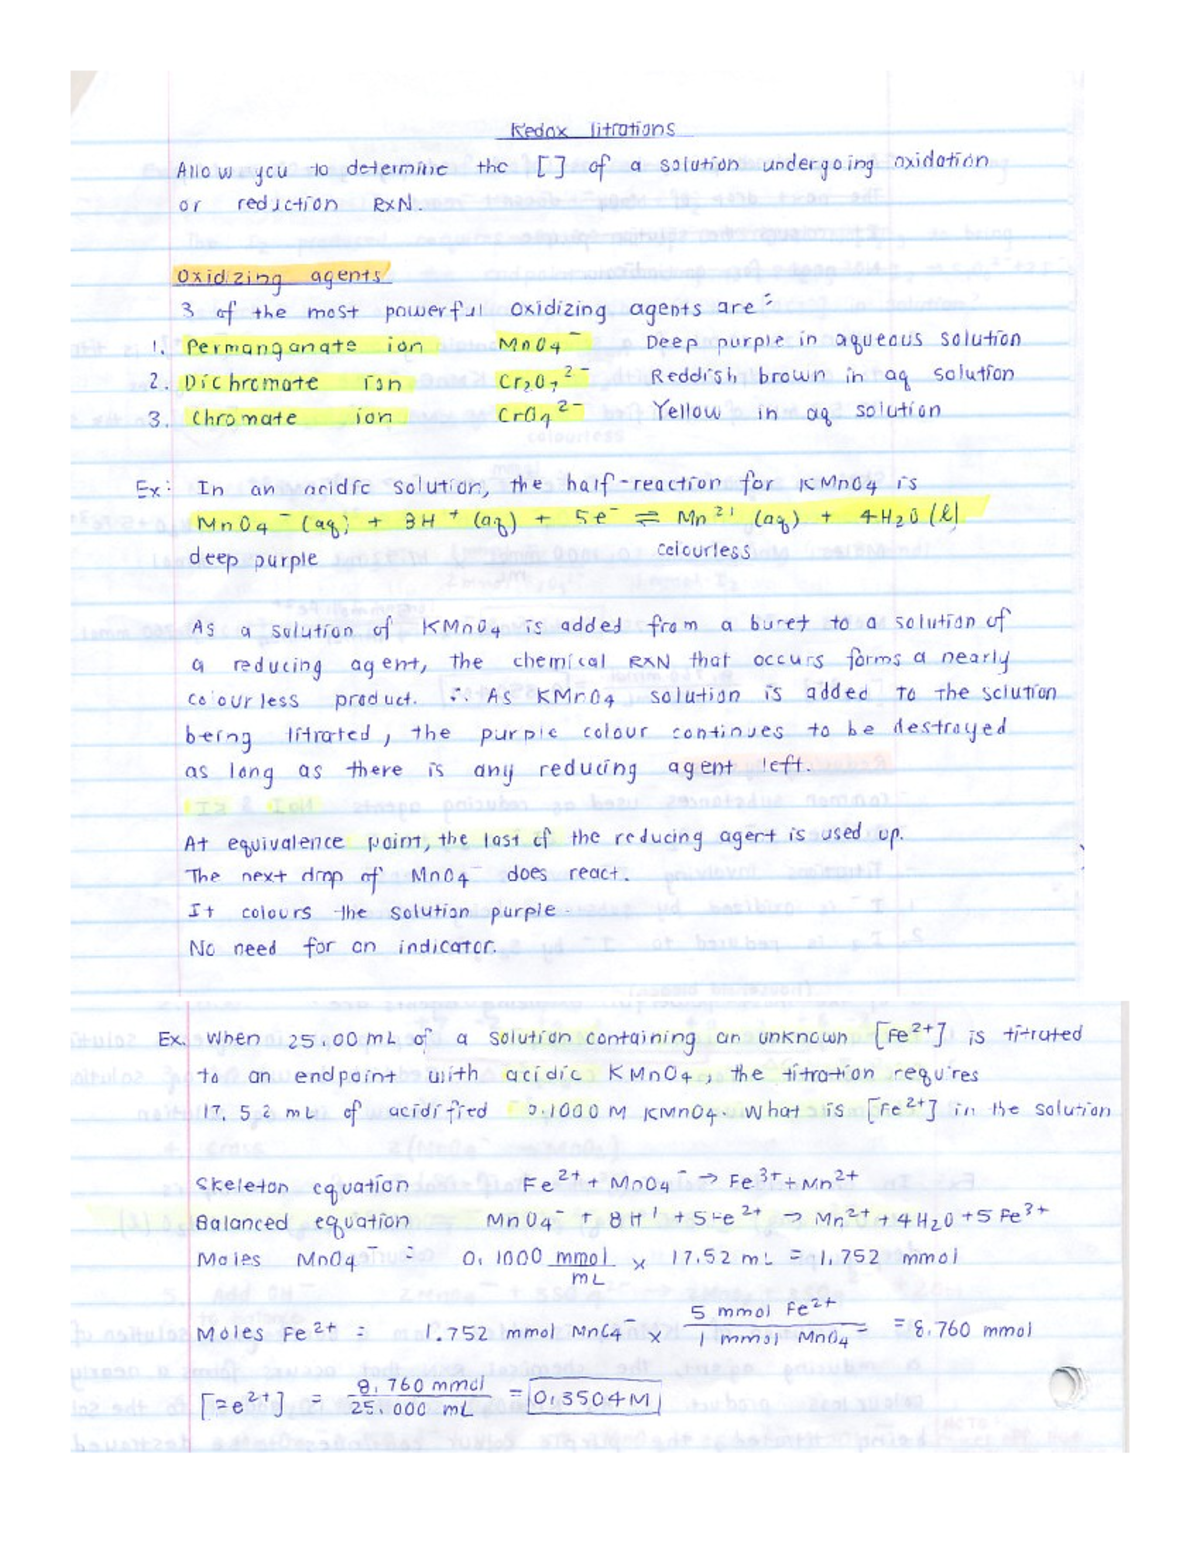 Redox Titrations
Allow you to determine the [ ] of a solution undergoing oxidation
or reduction RXN.
Oxidizing agents
3 of the most powerful oxidizing agents are :
1. Permanganate ion MnO4⁻ Deep purple in aqueous solution
2. Dichromate ion Cr2O7²⁻ Reddish brown in aq solution
3. Chromate ion CrO4²⁻ Yellow in aq solution
Ex: In an acidic solution, the half-reaction for KMnO4 is
MnO4⁻ (aq) + 8H⁺ (aq) + 5e⁻ ⇌ Mn²⁺ (aq) + 4H2O (l)
deep purple colourless
As a solution of KMnO4 is added from a buret to a solution of
a reducing agent, the chemical RXN that occurs forms a nearly
colourless product. ∴ As KMnO4 solution is added to the solution
being titrated, the purple colour continues to be destroyed
as long as there is any reducing agent left.
At equivalence point, the last of the reducing agent is used up.
The next drop of MnO4⁻ does react.
It colours the solution purple.
No need for an indicator.
Ex. When 25.00 mL of a solution containing an unknown [Fe²⁺] is titrated
to an endpoint with acidic KMnO4, the titration requires
17.52 mL of acidified 0.1000 M KMnO4. What is [Fe²⁺] in the solution
Skeleton equation Fe²⁺ + MnO4⁻ → Fe³⁺ + Mn²⁺
Balanced equation MnO4⁻ + 8H⁺ + 5Fe²⁺ → Mn²⁺ + 4H2O + 5Fe³⁺
Moles MnO4⁻ = 0.1000 mmol/mL × 17.52 mL = 1.752 mmol
Moles Fe²⁺ = 1.752 mmol MnO4⁻ × 5 mmol Fe²⁺/1 mmol MnO4⁻ = 8.760 mmol
[Fe²⁺] = 8.760 mmol/25.000 mL = 0.3504 M